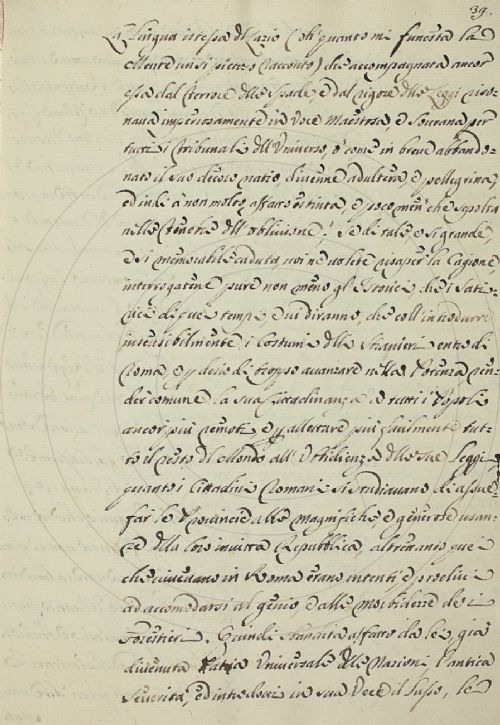 39.
La Lingua istessa del Lazio (oh quanto mi funesta la
Mente un sì picciol racconto) che accompagnata ancor
essa dal terrore delle Spade, e dal rigore delle Leggi riso-
nava imperiosamente in Voce Maestosa, e Sovrana per
tutti i Tribunali dell'Universo, o come in breve abbando-
nato il suo decoro natio, divenne adultera, e pellegrina,
ed indi a non molto affatto estinta, e poco men che sepolta
nelle Tenebre dell'oblivione! Se di tale, e sì grande,
e sì memorabile caduta, voi ne volete risaper la Cagione
interrogatene pure non meno gl'Istorici che i Sati-
rici di que' tempi, e vi diranno, che coll'introdurre
insensibilmente i Costumi delle Stranieri entro di
Roma, e per desio di troppo avanzare nella Potenza ren-
der comune la sua Cittadinanza a tutti i Popoli
ancor più remoti e per allettare più facilmente tut-
to il resto del Mondo all'Obbidienza delle sue Leggi,
quanto i Cittadini Romani si studiavano di assue-
far le Provincie alle magnifiche, e generose usan-
ze della loro invitta Repubblica, altrettanto quei
che vivevano in Roma erano intenti, e proclivi
ad accomodarsi al genio, e alle morbidezze dei
Forestieri. Quindi sbandita affatto da lei, già
divenuta Patria Universale delle Nazioni, l'antica
Severità, ed introdotti in sua Vece il Lusso, le